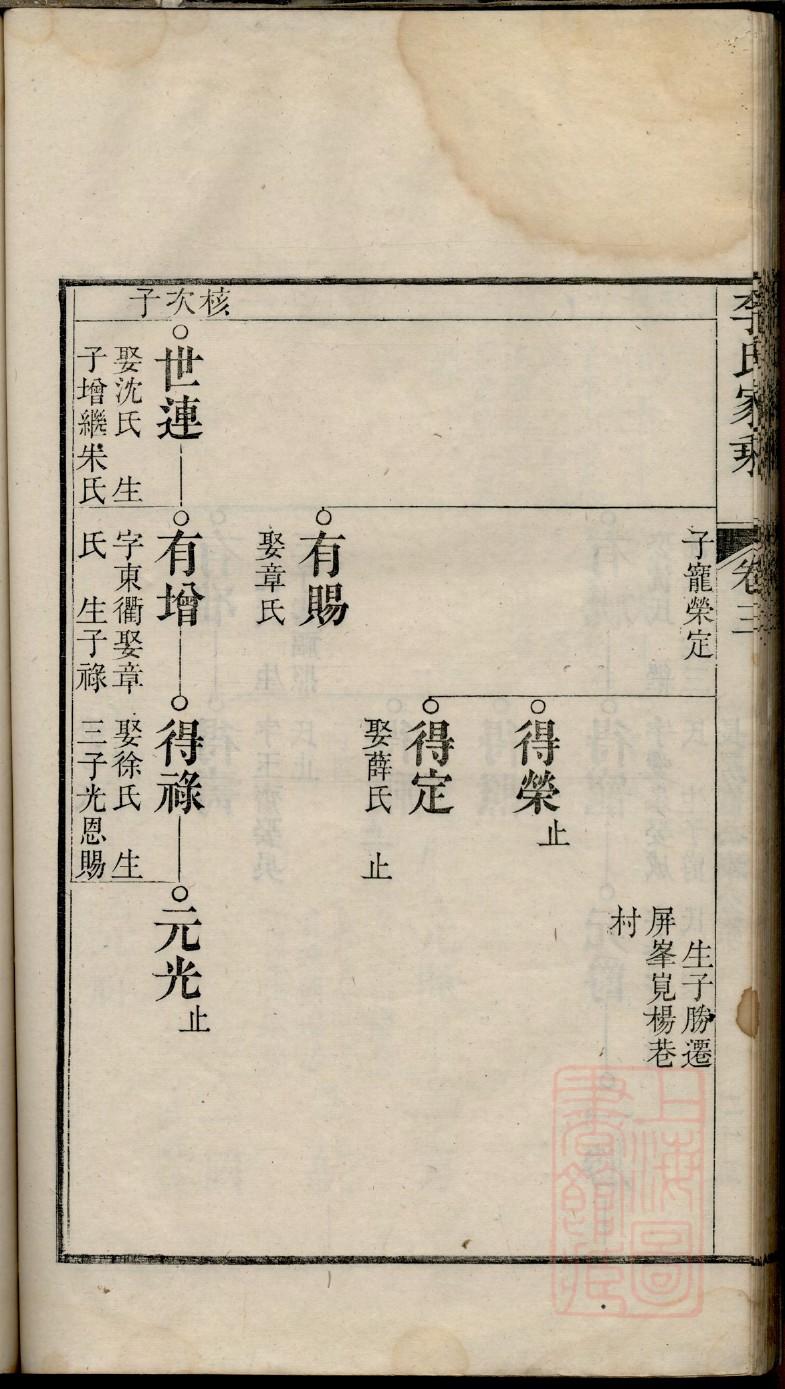 李氏家乘
卷三
子寵榮定
生子勝遷
屏峯𡵺楊巷
村
得榮
止
得定
娶薛氏 止
有賜
娶章氏
核次子
世連
娶沈氏 生
子增繼朱氏
有增
字東衢娶章
氏 生子祿
得祿
娶徐氏 生
三子光恩賜
元光
止
上海圖
書館藏